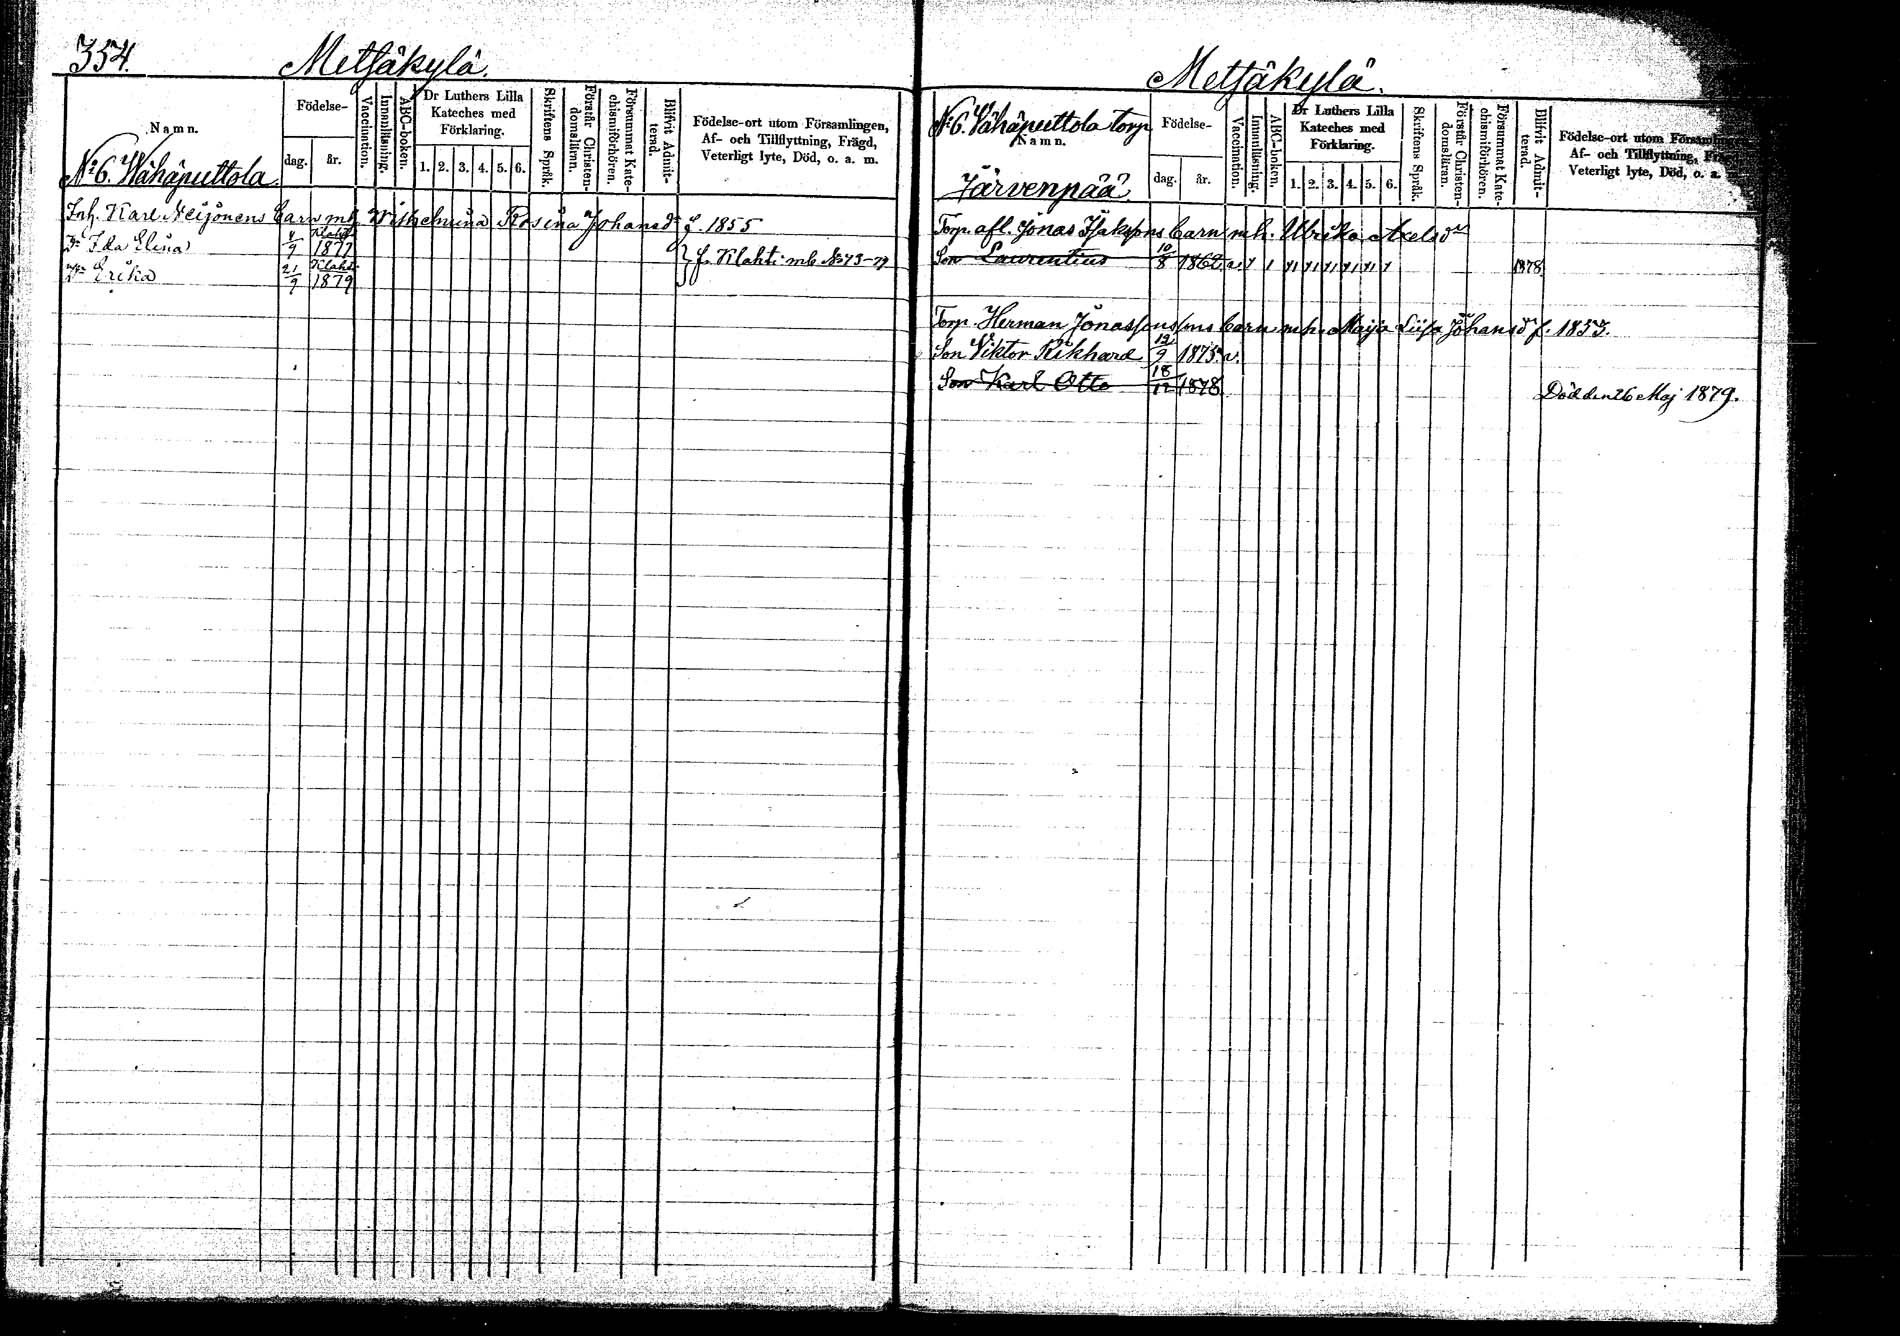 354.
Metsäkylä.
Namn.
Födelse-
dag. år.
Vaccination.
Innanläsning.
ABC-boken.
Dr Luthers Lilla Kateches med Förklaring.
1. 2. 3. 4. 5. 6.
Skriftens Språk.
Förstår Christendomslärn.
Försummat Katechismiförhören.
Blifvit Admitterad.
Födelse-ort utom Församlingen,
Af- och Tillflyttning, Frägd,
Veterligt lyte, Död, o. a. m.
No 6. Wähäputtola
Inh. Karl Neijonens barn mh. Wilhelmina Rosina Johansdr f. 1855
Dr Ida Elina 4/9 Klahti 1877
Dr Erika 21/9 Klahti 1879
f. Klahti mb No 73-79
Metsäkylä.
No 6. Vähäputtola torp
Namn.
Järvenpää
Födelse-
dag. år.
Vaccination.
Innanläsning.
ABC-boken.
Dr Luthers Lilla Kateches med Förklaring.
1. 2. 3. 4. 5. 6.
Skriftens Språk.
Förstår Christendomsläran.
Försummat Katechismiförhören.
Blifvit Admitterad.
Födelse-ort utom
Af- och Tillflyttning,
Veterligt lyte, Död, o. a.
Torp. afl. Jonas Isakssons barn mh. Ulrika Axelsdr
Son Laurentius 10/8 1862 v. 1878.
Torp. Herman Jonassons barn mh. Maija Liisa Johansdr f. 1855.
Son Viktor Rikhard 12/9 1875. v.
Son Karl Otto 18/12 1878. Död den 26 Maj 1879.